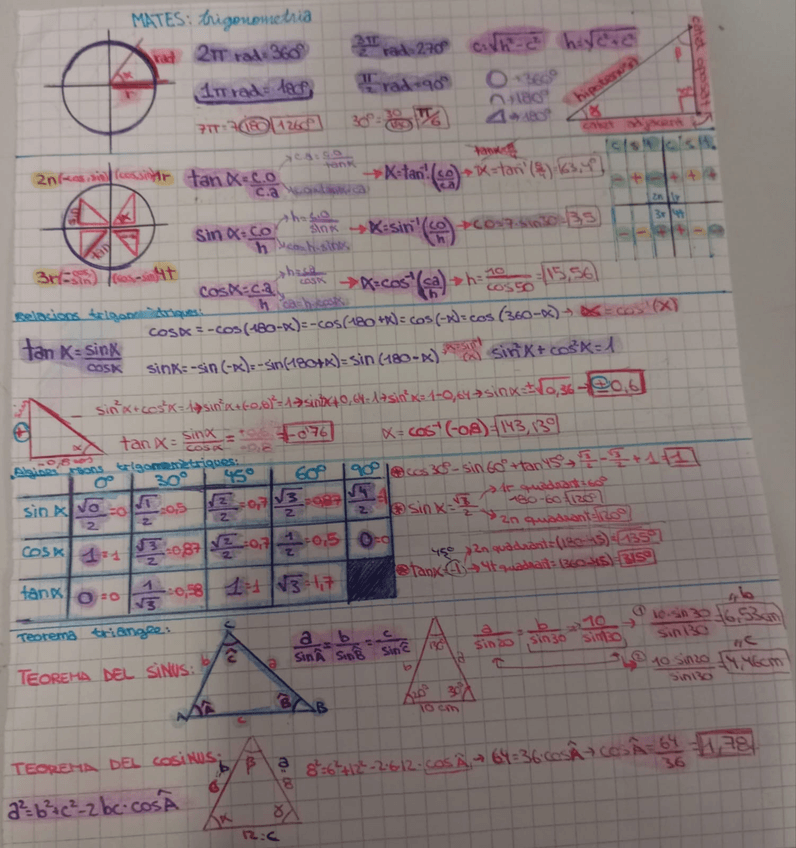 MATES: trigonometria
rad
α
r
2π rad=360º
3π/2 rad=270º
c=√h²-c²
h=√c²+c²
1π rad=180º
π/2 rad=90º
O→360º
∩→180º
△→180º
hipotenusa
catet oposat
catet adjacent
7π=7·180=1260º
30º=30/180=π/6
2n(-cos, sin)
(cos, sin)1r
3r(-cos, -sin)
(cos, -sin)4t
tan α=c.o/c.a
ca=co/tanα
→ α=tan⁻¹(co/ca)
sin α=co/h
h=co/sinα
co=h·sinα
→ α=sin⁻¹(co/h) → co=7·sin30=3,5
cosα=c.a/h
h=ca/cosα
ca=h·cosα
→ α=cos⁻¹(ca/h) → h=10/cos50=15,56
c s t c s t
- + - + + +
2n 1r
3r 4t
- - + + - -
Relacions trigonomètriques:
cosα=-cos(180-α)=-cos(180+α)=cos(-α)=cos(360-α)→ α=cos⁻¹(x)
tan α=sinα/cosα
sinα=-sin(-α)=-sin(180+α)=sin(180-α)
sin²α+cos²α=1
sin²α+cos²α=1→sin²α+(-0,8)²=1→sin²α+0,64=1→sin²α=1-0,64→sinα=±√0,36→±0,6
-0,8
α
tanα=sinα/cosα=+0,6/-0,8=-0'76
α=cos⁻¹(-0,8)=143,13º
Algunes raons trigonomètriques:
0º 30º 45º 60º 90º
sin α √0/2=0 √1/2=0,5 √2/2=0,7 √3/2=0,87 √4/2=1
cosα 1=1 √3/2=0,87 √2/2=0,7 1/2=0,5 0=0
tanα 0=0 1/√3=0,58 1=1 √3=1,7
cos30º-sin60º+tan45º→√3/2-√3/2+1=1
sinα=√3/2
→ 1r quadrant=60º
180-60=120º
→ 2n quadrant=120º
45º
tanα(-1)
→ 2n quadrant=(180-45)=135º
→ 4t quadrant=(360-45)=315º
Teorema triangle:
TEOREMA DEL SINUS:
C
Ĉ
b
a
A
Â
B̂
B
c
a/sinÂ=b/sinB̂=c/sinĈ
b
a
130º
20º
30º
10 cm
a/sin20=b/sin30=10/sin130
① 10·sin30/sin130=6,53cm
"b
② 10·sin20/sin130=4,46cm
"c
TEOREMA DEL COSINUS:
a²=b²+c²-2bc·cosÂ
b
6
β
a
8
α
γ
12=c
8²=6²+12²-2·6·12·cosÂ→64=36·cosÂ→cosÂ=64/36=1,78